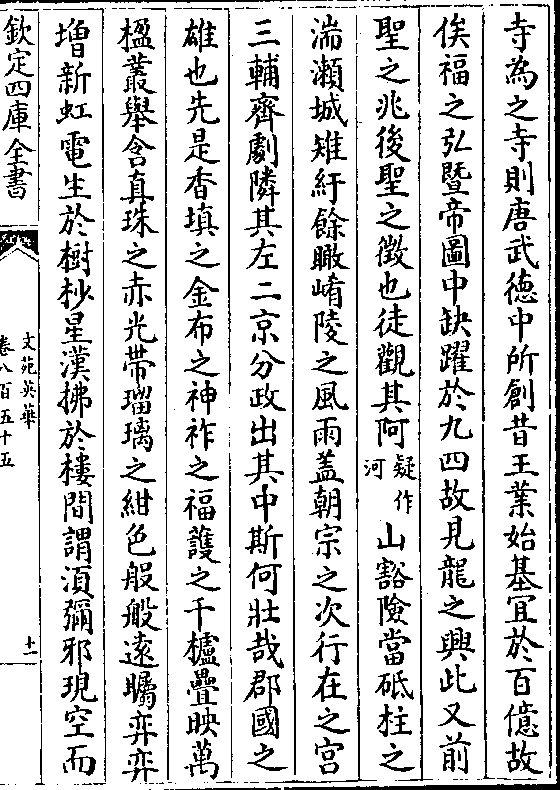 寺為之寺則唐武德中所創昔王業始基冝於百億故
俟福之弘暨帝圖中缺躍於九四故見龍之興此又前
聖之兆後聖之徴也徒觀其阿疑作河山豁險當砥柱之
湍瀬城雉紆餘瞰崤陵之風雨盖朝宗之次行在之宫
三輔齊劇隣其左二京分政出其中斯何壯哉郡國之
雄也先是香填之金布之神祚之福䕶之千櫨疊映萬
楹叢舉含真珠之赤光帶瑠璃之紺色般般逺矚弈弈
増新虹電生於樹杪星漢拂於樓間謂湏彌邪現空而
欽定四庫全書
文苑英華
卷八百五十五
十一